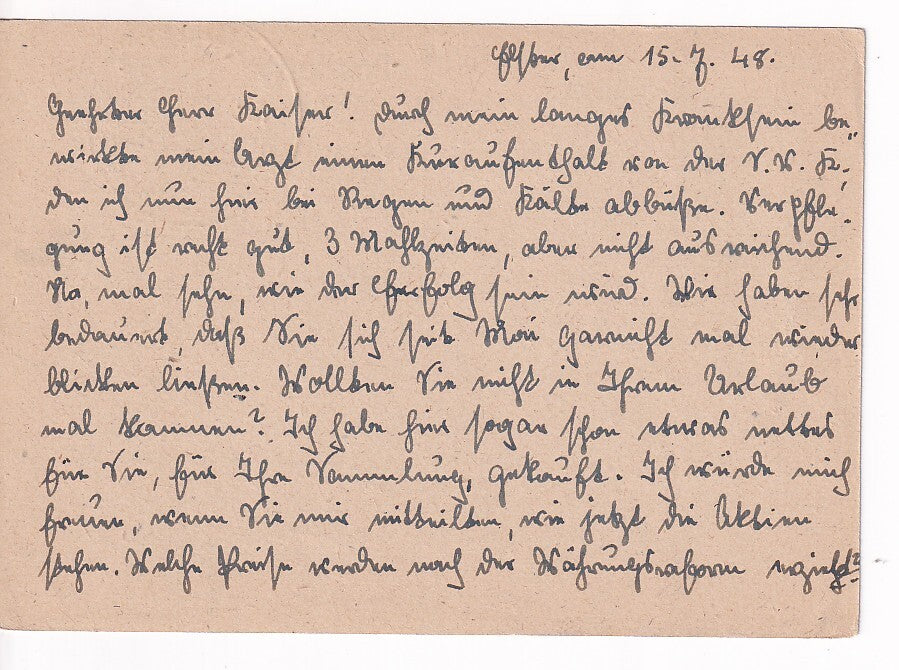 Elster, am 15.7.48.
Geehrter Herr Kaiser! Durch mein langes Kranksein be-
wirkte mein Arzt einen Kuraufenthalt von der S.V.K.,
den ich nun hier bei Regen und Kälte abbüße. Verpfle-
gung ist recht gut, 3 Mahlzeiten, aber nicht ausreichend.
Na, mal sehn, wie der Erfolg sein wird. Wir haben sehr
bedauert, daß Sie sich seit Mai garnicht mal wieder
blicken ließen. Wollten Sie nicht in Ihrem Urlaub
mal kommen? Ich habe hier sogar schon etwas nettes
für Sie, für Ihre Sammlung, gekauft. Ich würde mich
freuen, wenn Sie mir mitteilten, wie jetzt die Aktien
stehen. Welche Preise werden nach der Währungsreform erzielt?